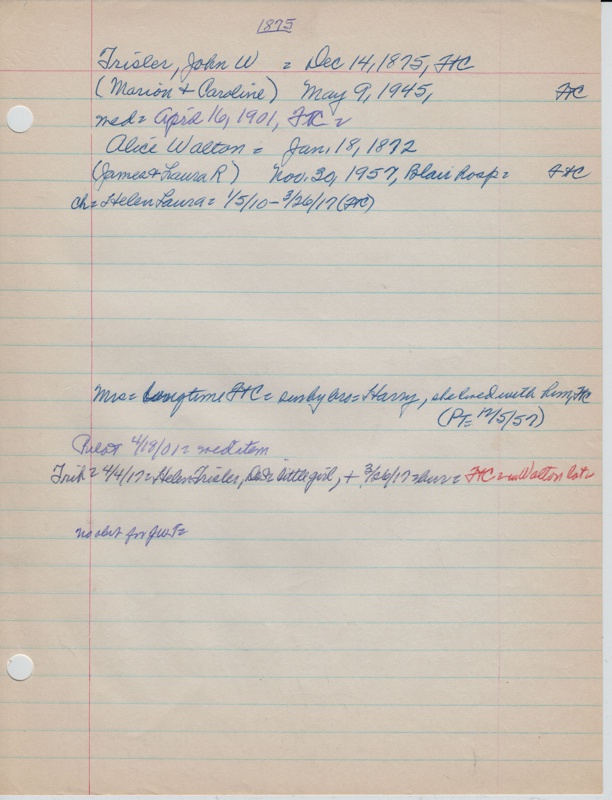 1875
Trisler, John W = Dec 14, 1875, FtC
(Marion + Caroline) May 9, 1945, FtC
med = April 16, 1901, FtC =
Alice Walton = Jan. 18, 1872
(James + Laura R) Nov. 30, 1957, Blair Hosp = FtC
ch = Helen Laura = 1/5/10 - 3/26/17 (FtC)
Mrs = longtime FtC = surv by bro = Harry, she lived with him, FtC
(PT = 12/5/57)
Pilot 4/18/01 = med item
Trib = 4/4/17 = Helen Trisler, little girl, + 3/26/17 = bur = FtC = in Walton lot =
no obit for JWT =